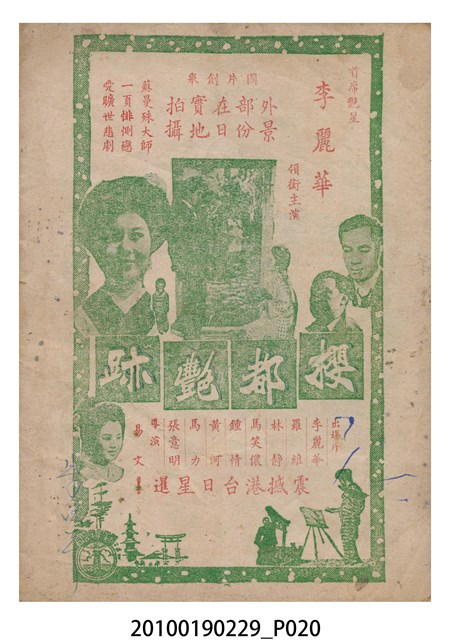 首席艷星
李麗華
領銜主演
國片創舉
外景
部份
在日
實地
拍攝
蘇曼殊大師
一頁悱測纏
受曠世悲劇
櫻都艷跡
李麗華
羅維
林靜
馬笑儂
鍾情
黃河
馬力
張意明
導演
易文
震撼港台日星選
20100190229_P020